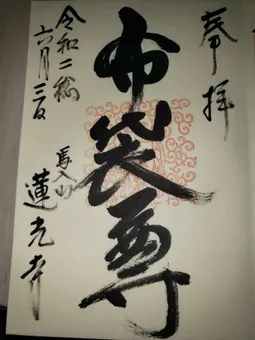 奉拝
布袋尊
令和二年
六月三日
馬入山
蓮光寺